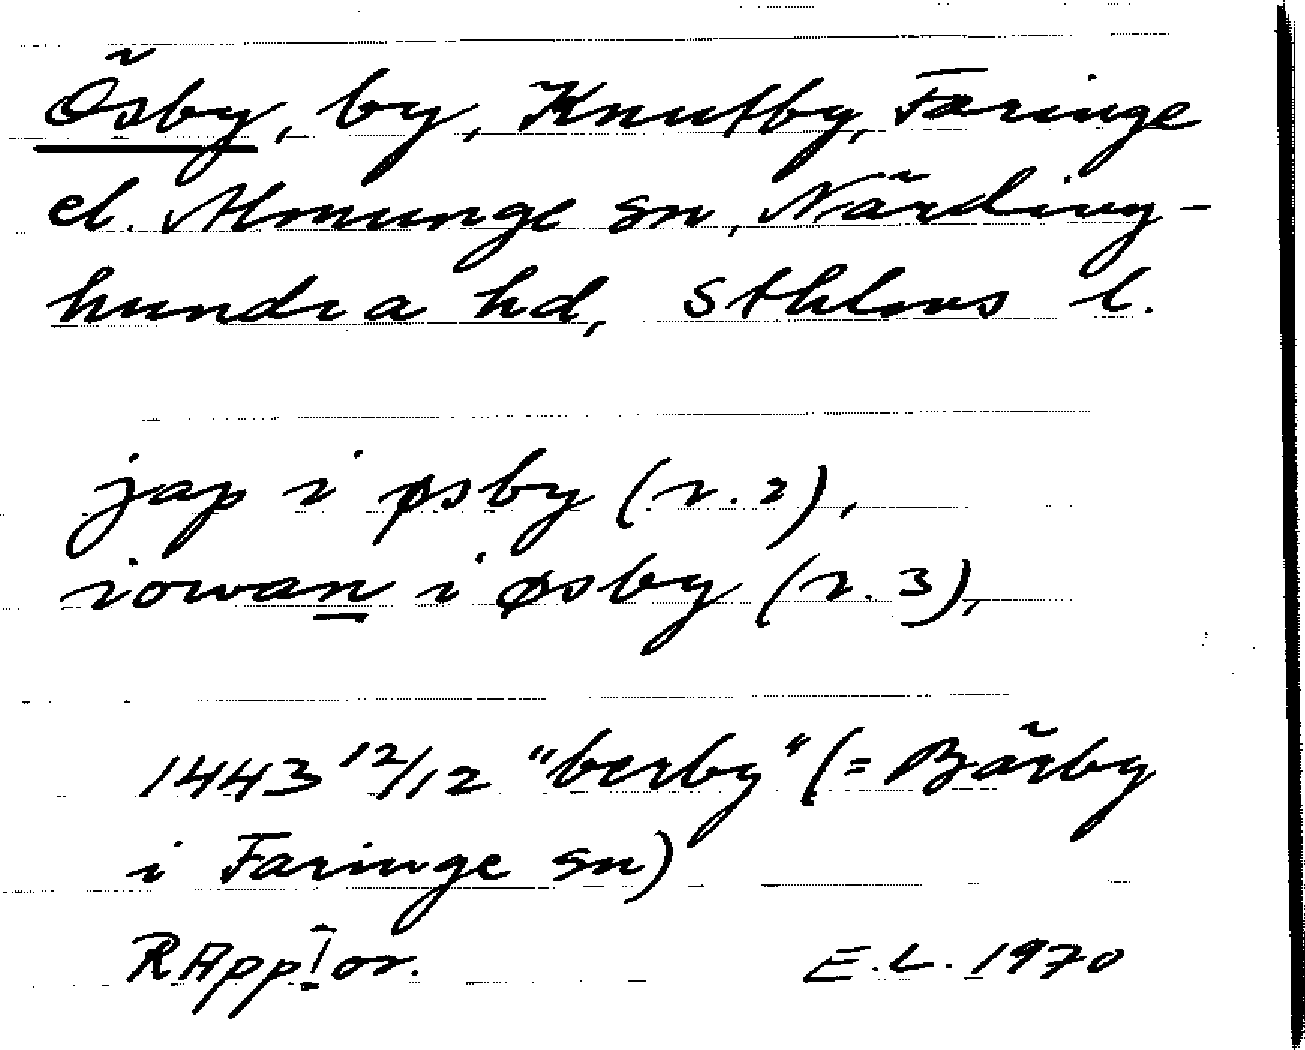 Ösby, by, Knutby, Faringe
el. Almunge sn, Närding-
hundra hd, Sthlms l.
jap i øsby (r. 2),
iowan i øsby (r. 3),
1443 12/12 "berby" (= Bärby
i Faringe sn)
RApp I or. E.L. 1970